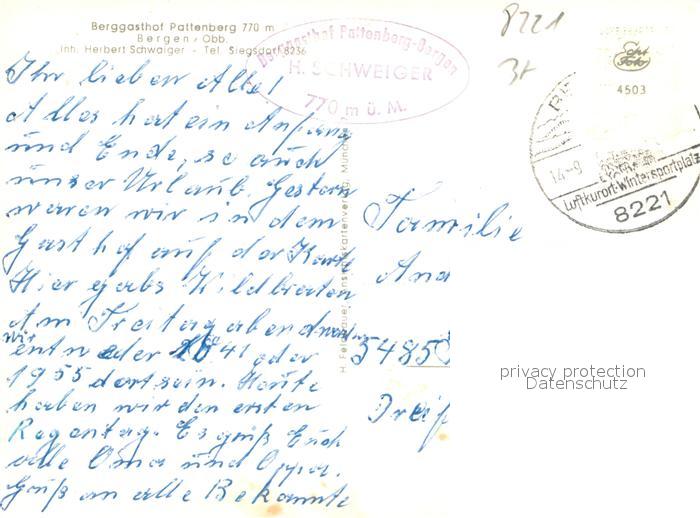 Berggasthof Pattenberg 770 m
Bergen / Obb.
Inh. Herbert Schwaiger - Tel. Siegsdorf 8236
Berggasthof Pattenberg-Bergen
H. SCHWEIGER
770 m ü. M.
8221
4503
14.-9
Luftkurort-Wintersportplatz
8221
Ihr lieben Alle!
Alles hat ein Anfang
und Ende, so auch
unser Urlaub. Gestern
waren wir in dem
Gasthof auf der Karte
Hier gabs Wildbraten
Am Freitag abend werden
wir
entweder 1841 oder
1955 dort sein. Heute
haben wir den ersten
Regentag. Es grüß Euch
alle Oma und Oppa.
Gruß an alle Bekannte
Familie
And
5485
privacy protection
Datenschutz